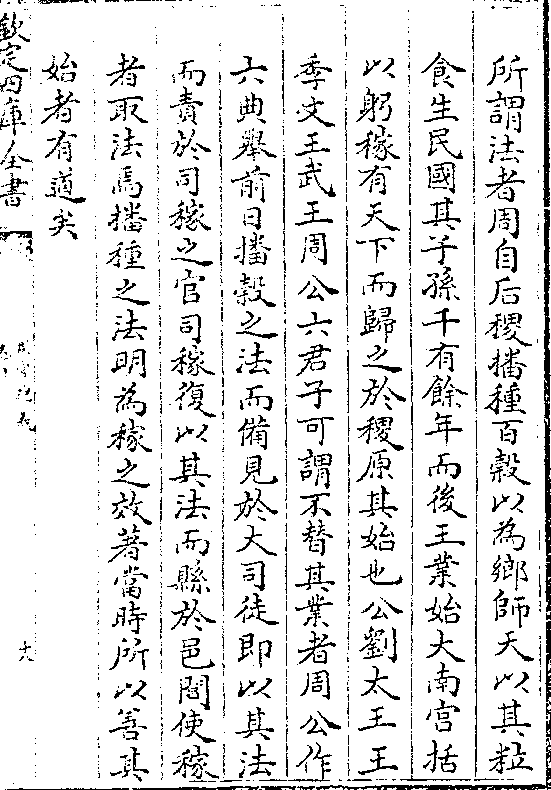 所謂法者周自后稷播種百穀以為鄉師天以其粒
食生民國其子孫千有餘年而後王業始大南宫括
以躬稼有天下而歸之於稷原其始也公劉太王王
季文王武王周公六君子可謂不替其業者周公作
六典舉前日播穀之法而備見於大司徒即以其法
而責於司稼之官司稼復以其法而縣於邑閭使稼
者取法焉播種之法明為稼之效著當時所以善其
始者有道矣
欽定四庫全書
十九